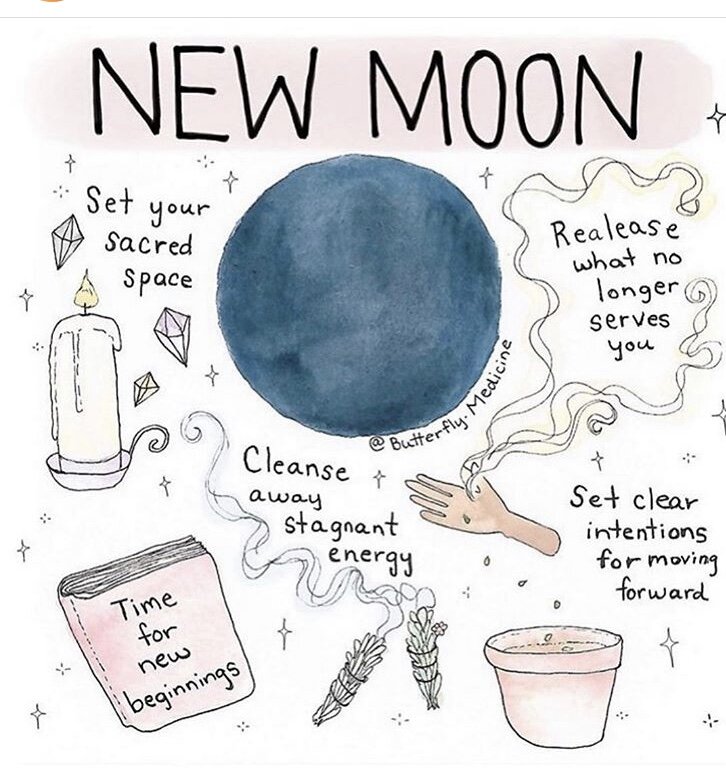 NEW MOON
Set your
sacred
space
Realease
what no
longer
serves
you
@Butterfly.Medicine
Cleanse
away
stagnant
energy
Set clear
intentions
for moving
forward
Time
for
new
beginnings